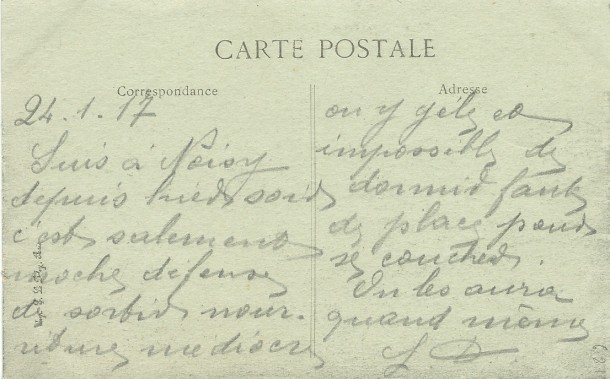 CARTE POSTALE
Correspondance
24.1.17
Suis à Noisy
depuis hier soir
c'est salement
moche défense
de sortir nour-
riture médiocre
Adresse
on y gèle et
impossible de
dormir faute
de place pour
se coucher.
On les aura
quand même